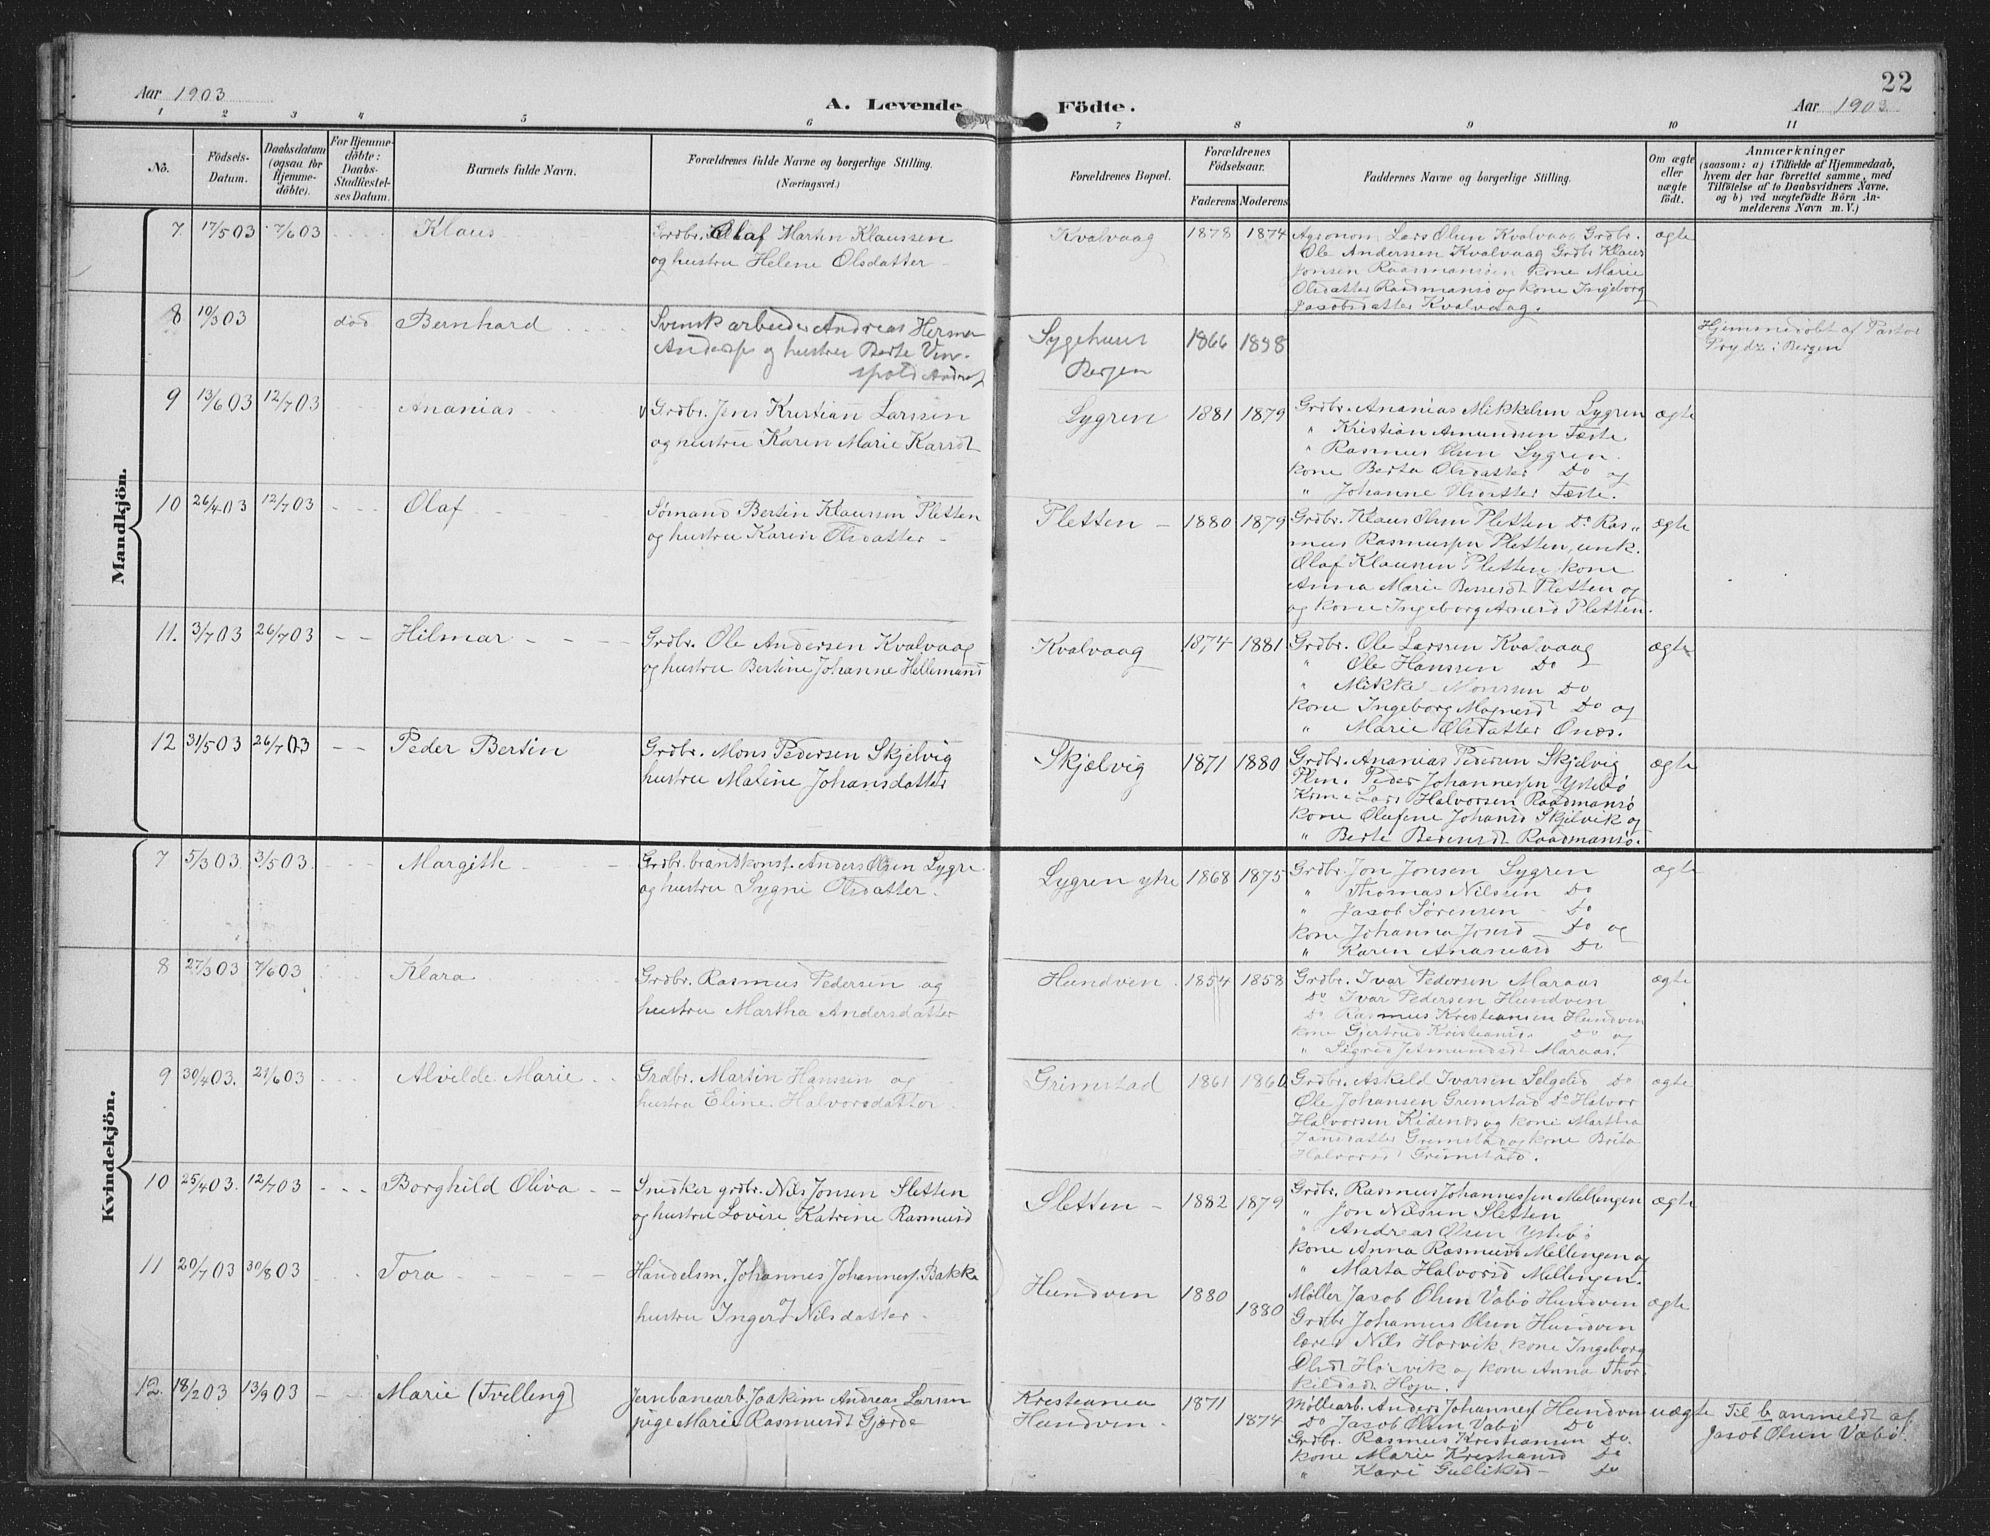 Aar 1903
A. Levende Födte.
Aar 1903
22
1 2 3 4 5 6 7 8 9 10 11
No.
Födsels-
Datum.
Daabsdatum
(ogsaa for
Hjemme-
döbte).
For Hjemme-
döbte:
Daabs-
Stadfæstel-
ses Datum.
Barnets fulde Navn.
Forældrenes fulde Navne og borgerlige Stilling.
(Næringsvei.)
Forældrenes Bopæl.
Forældrenes
Födselsaar.
Faderens Moderens
Faddernes Navne og borgerlige Stilling.
Om ægte
eller
uægte
født.
Anmærkninger
(saasom: a) i Tilfælde af Hjemmedaab,
hvem der har forrettet samme, med
Tilföielse af to Daabsvidners Navne.
og b) ved uægtefödte Börn An-
melderens Navn m. V.)
Mandkjön.
7. 17/5 03 7/6 03 Klaus
Grdbr. Olaf Martin Klaussen
og hustru Helene Olsdatter
Kvalvaag 1878 1874
Agronom Lars Olsen Kvalvaag Grdbr.
Ole Anderssen Kvalvaag Grdbr Klaus
Jonsen Raadmansøen kone Marie
Olsdatter Raadmansø og kone Ingeborg
Jacobsdatter Kvalvaag.
ægte
8 10/3 03 død Bernhard
Svensk arbeider Andreas Herman
og hustru Berte
Sygehuset
Bergen
1866 1898
Hjemmedøbt af Pastor
i Bergen
9 13/6 03 12/7 03 Ananias
Grdbr. Jens Kristian Larssen
og hustru Karen Marie
Lygren 1881 1879
Grdbr. Ananias Mikkelsen Lygren
" Kristian Amundsen Fæste
" Rasmus Olsen Lygren.
kone Berta Olsdatter Do og
" Johanne Olsdatter Fæste.
ægte
10 26/4 03 12/7 03 Olaf
Sømand Bertin Klaussen Pletten
og hustru Karen Olsdatter
Pletten 1880 1879
Grdbr. Klaus Olsen Pletten Do Ras-
mus Rasmussen Pletten, unk.
Olaf Klausen Pletten kone
Anna Marie Pletten og
og kone Ingeborg Pletten.
ægte
11. 3/7 03 26/7 03 Hilmar
Grdbr. Ole Andersen Kvalvaag
og hustru Bertine Johanne
Kvalvaag 1874 1881
Grdbr. Ole Larssen Kvalvaag
" Ole Hanssen Do
" Mikkel Monssen Do
kone Ingeborg Do og
" Marie Olsdatter Onæs.
ægte
12 31/5 03 26/7 03 Peder Bertin
Grdbr. Mons Pedersen Skjelvig
hustru Maline Johansdatter
Skjælvig 1871 1880
Grdbr. Ananias Pedersen Skjelvig
Peder Johannessen Ystebø
Lars Halvorsen Raadmansø
kone Olufine Johansd Skjelvik og
" Berte Raadmansø.
ægte
Kvindekjön.
7 5/3 03. 3/5 03. Margith
Grdbr. brandkonst. Anders Olsen Lygre
og hustru Sygni Olsdatter.
Lygren ytre 1868 1875
Grdbr. Jon Jonsen Lygren
" Thomas Nilsen Do
" Jacob Sørensen Do
kone Johanna Jonsd Do og
" Karen Ananiasd Do
ægte
8 27/3 03 7/6 03 Klara
Grdbr. Rasmus Pedersen og
hustru Martha Andersdatter
Hundven. 1854 1858
Grdbr. Ivar Pedersen Maraas
Do Ivar Pedersen Hundven
Do Rasmus Kristiansen Hundven
kone Gjertrud Kristiansd. Do og
" Sigrid Maraas.
ægte
9 30/4 03. 21/6 03 Alvilde Marie
Grdbr. Martin Hanssen og
hustru Eline Halvorsdatter
Grimstad 1861 1860
Grdbr. Askild Ivarsen
Ole Johansen Grimstad Do Halvor
Halvorsen og kone Martha
Jansdatter Grimstad og kone Brita
Halvorsd Grimstad.
ægte
10 25/4 03. 12/7 03 Borghild Oliva
Snedker grdbr. Nils Jonsen Sletten
og hustru Lovise Katrine Rasmusd
Sletten 1882 1879
Grdbr. Rasmus Johannessen Mellingen
" Jon Nilssen Sletten
" Andreas Olsen Ystebø
kone Anna Rasmusd Mellingen og
" Marta Halvorsd Mellingen.
ægte
11 20/7 03 30/8 03 Tora
Handelsm. Johannes Johannesen Bakke
hustru Ingerd Nilsdatter
Hundven 1880 1880
Møller Jacob Olsen Vabø Hundven
Grdbr Johannes Olsen Hundven
lærer Nils Horvik, kone Ingeborg
Olsdt Horvik og kone Anna Thor-
kildsdt
ægte
12. 18/2 03 13/9 03 Marie (Tvilling)
Jernbanearb. Joakim Andreas Larsen
pige Marie Rasmusdt Gjerde
Kristiania
Hundven.
1871 1874
Møllearb. Anders Johannes Hundven
Do Jacob Olsen Vabø Do
Grdbr. Rasmus Kristiansen Do.
kone Marie Kristiansd Do
" Kari Gulliksd Do
uægte
Til b anmeldt af
Jacob Olsen Vabø